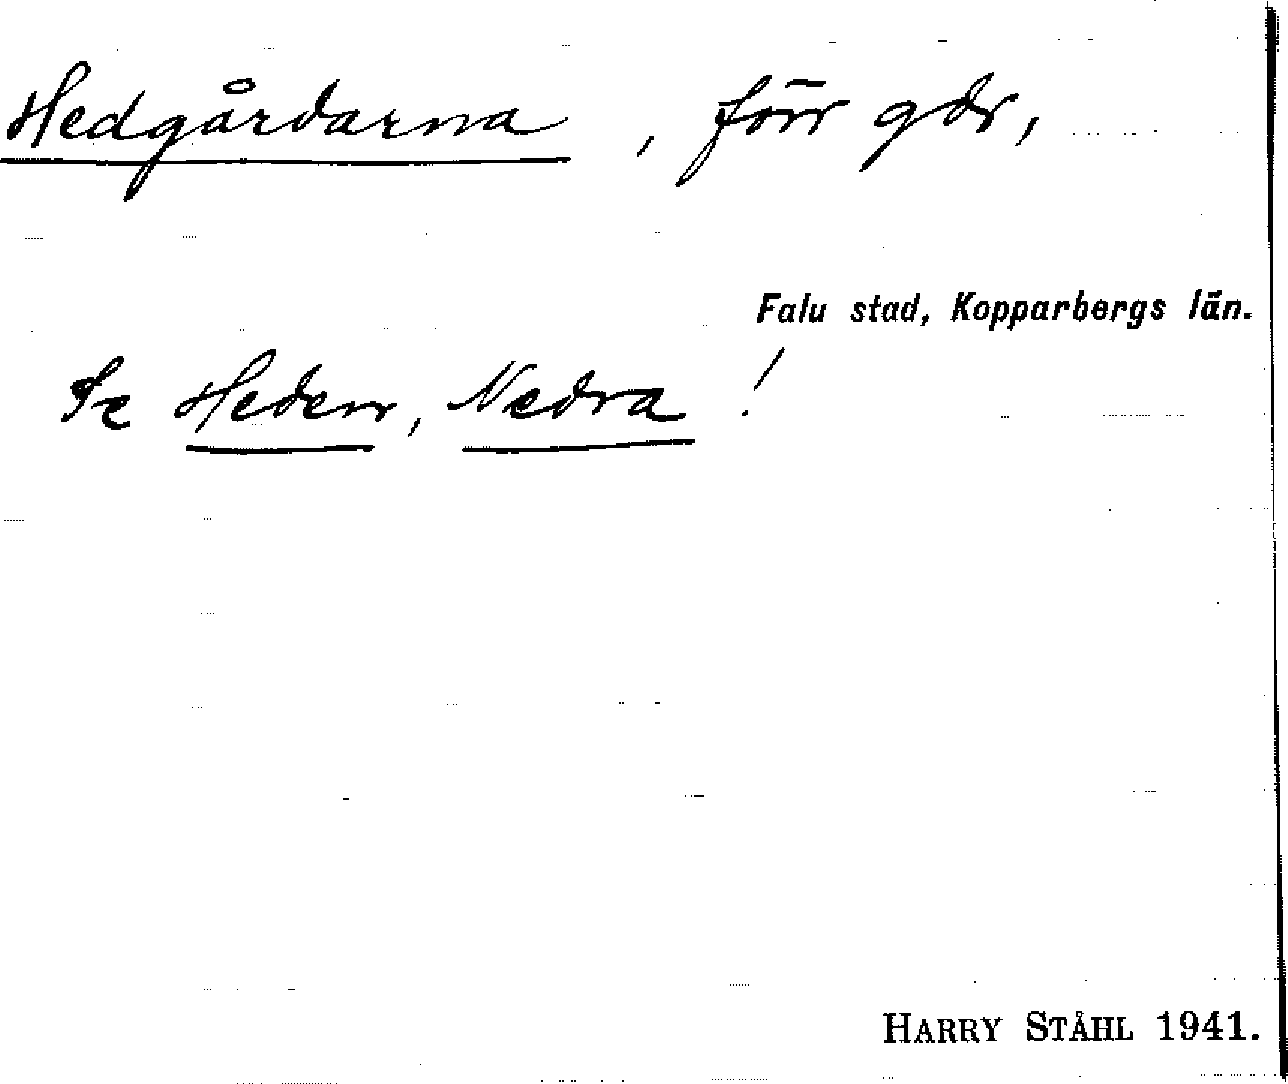 Hedgårdarna, förr gdr,
Falu stad, Kopparbergs län.
Se Heden, Nedra!
HARRY STÅHL 1941.